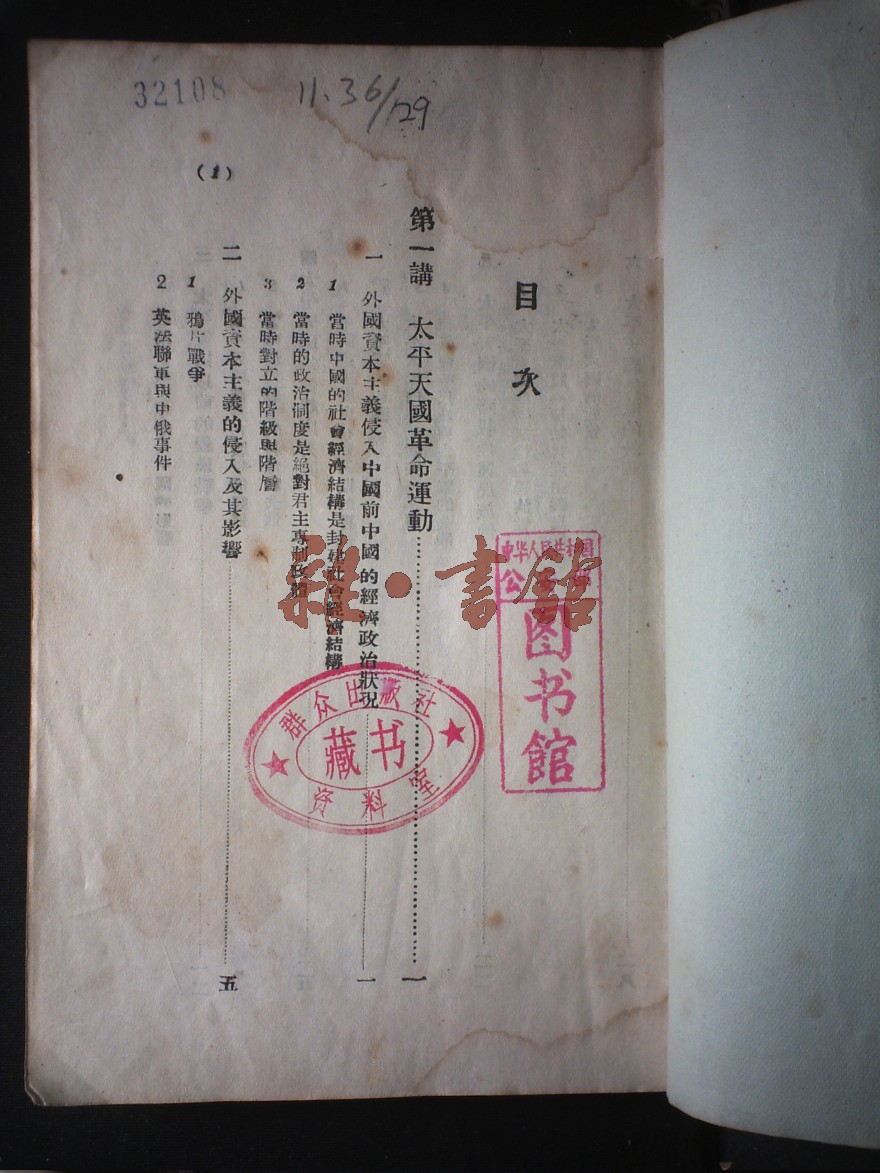 32108
11.36/129
目次
第一講 太平天國革命運動……一
一 外國資本主義侵入中國前中國的經濟政治狀况……一
1 當時中國的社會經濟結構是封建社會經濟結構
2 當時的政治制度是絕對君主專制政體
3 當時對立的階級與階層
二 外國資本主義的侵入及其影響……五
1 鴉片戰爭
2 英法聯軍與中俄事件
(1)
中华人民共和国
公安部
图书馆
群众出版社
藏书
资料室
雜·書館